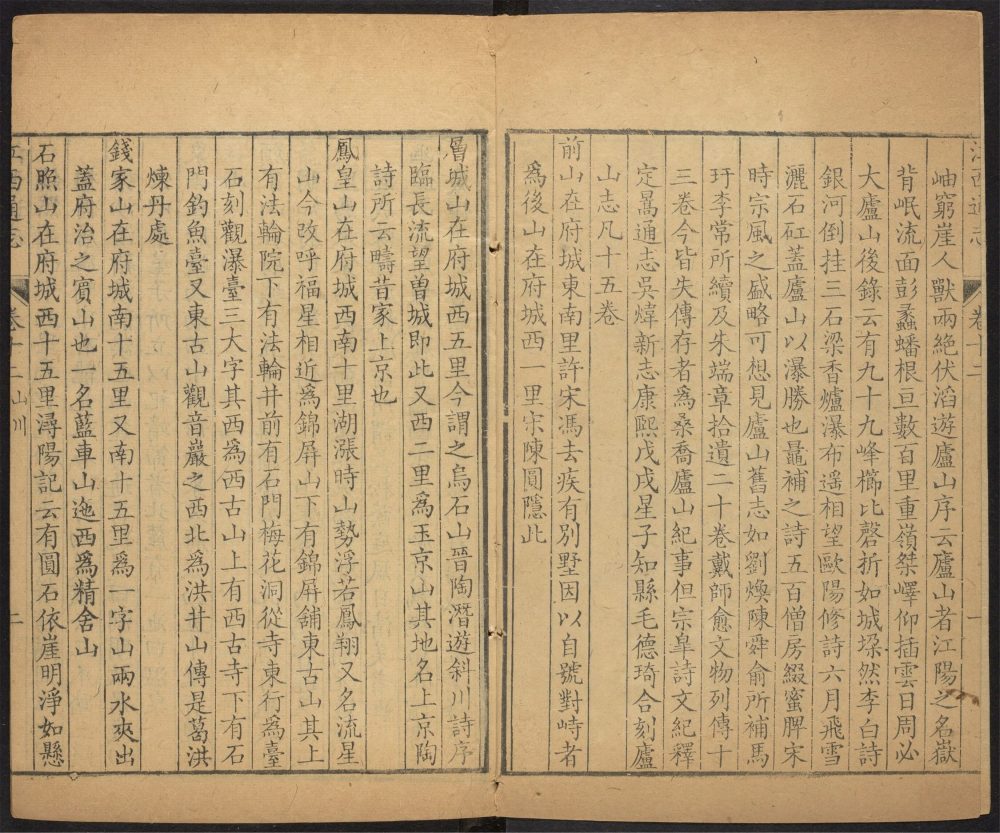 江西通志 卷十二 一
岫窮崖人獸兩絕伏滔遊廬山序云廬山者江陽之名嶽
背岷流面彭蠡蟠根亘數百里重嶺桀嶧仰插雲日周必
大廬山後錄云有九十九峰櫛比磬折如城垛然李白詩
銀河倒挂三石梁香爐瀑布遥相望歐陽修詩六月飛雪
灑石矼蓋廬山以瀑勝也鼂補之詩五百僧房綴蜜脾宋
時宗風之盛略可想見廬山舊志如劉煥陳舜俞所補馬
玗李常所續及朱端章拾遺二十卷戴師愈文物列傳十
三卷今皆失傳存者為桑喬廬山紀事但宗臯詩文紀釋
定暠通志吳煒新志康熙戊戌星子知縣毛德琦合刻廬
山志凡十五卷
前山在府城東南里許宋馮去疾有別墅因以自號對峙者
為後山在府城西一里宋陳圓隱此
層城山在府城西五里今謂之烏石山晉陶潛遊斜川詩序
臨長流望曾城即此又西二里為玉京山其地名上京陶
詩所云疇昔家上京也
鳳皇山在府城西南十里湖漲時山勢浮若鳳翔又名流星
山今改呼福星相近為錦屏山下有錦屏舖東古山其上
有法輪院下有法輪井前有石門梅花洞從寺東行為臺
石刻觀瀑臺三大字其西為西古山上有西古寺下有石
門釣魚臺又東古山觀音巖之西北為洪井山傳是葛洪
煉丹處
錢家山在府城南十五里又南十五里為一字山兩水夾出
蓋府治之賓山也一名藍車山迤西為精舍山
石照山在府城西十五里潯陽記云有圓石依崖明淨如懸
江西通志 卷十二 山川 二